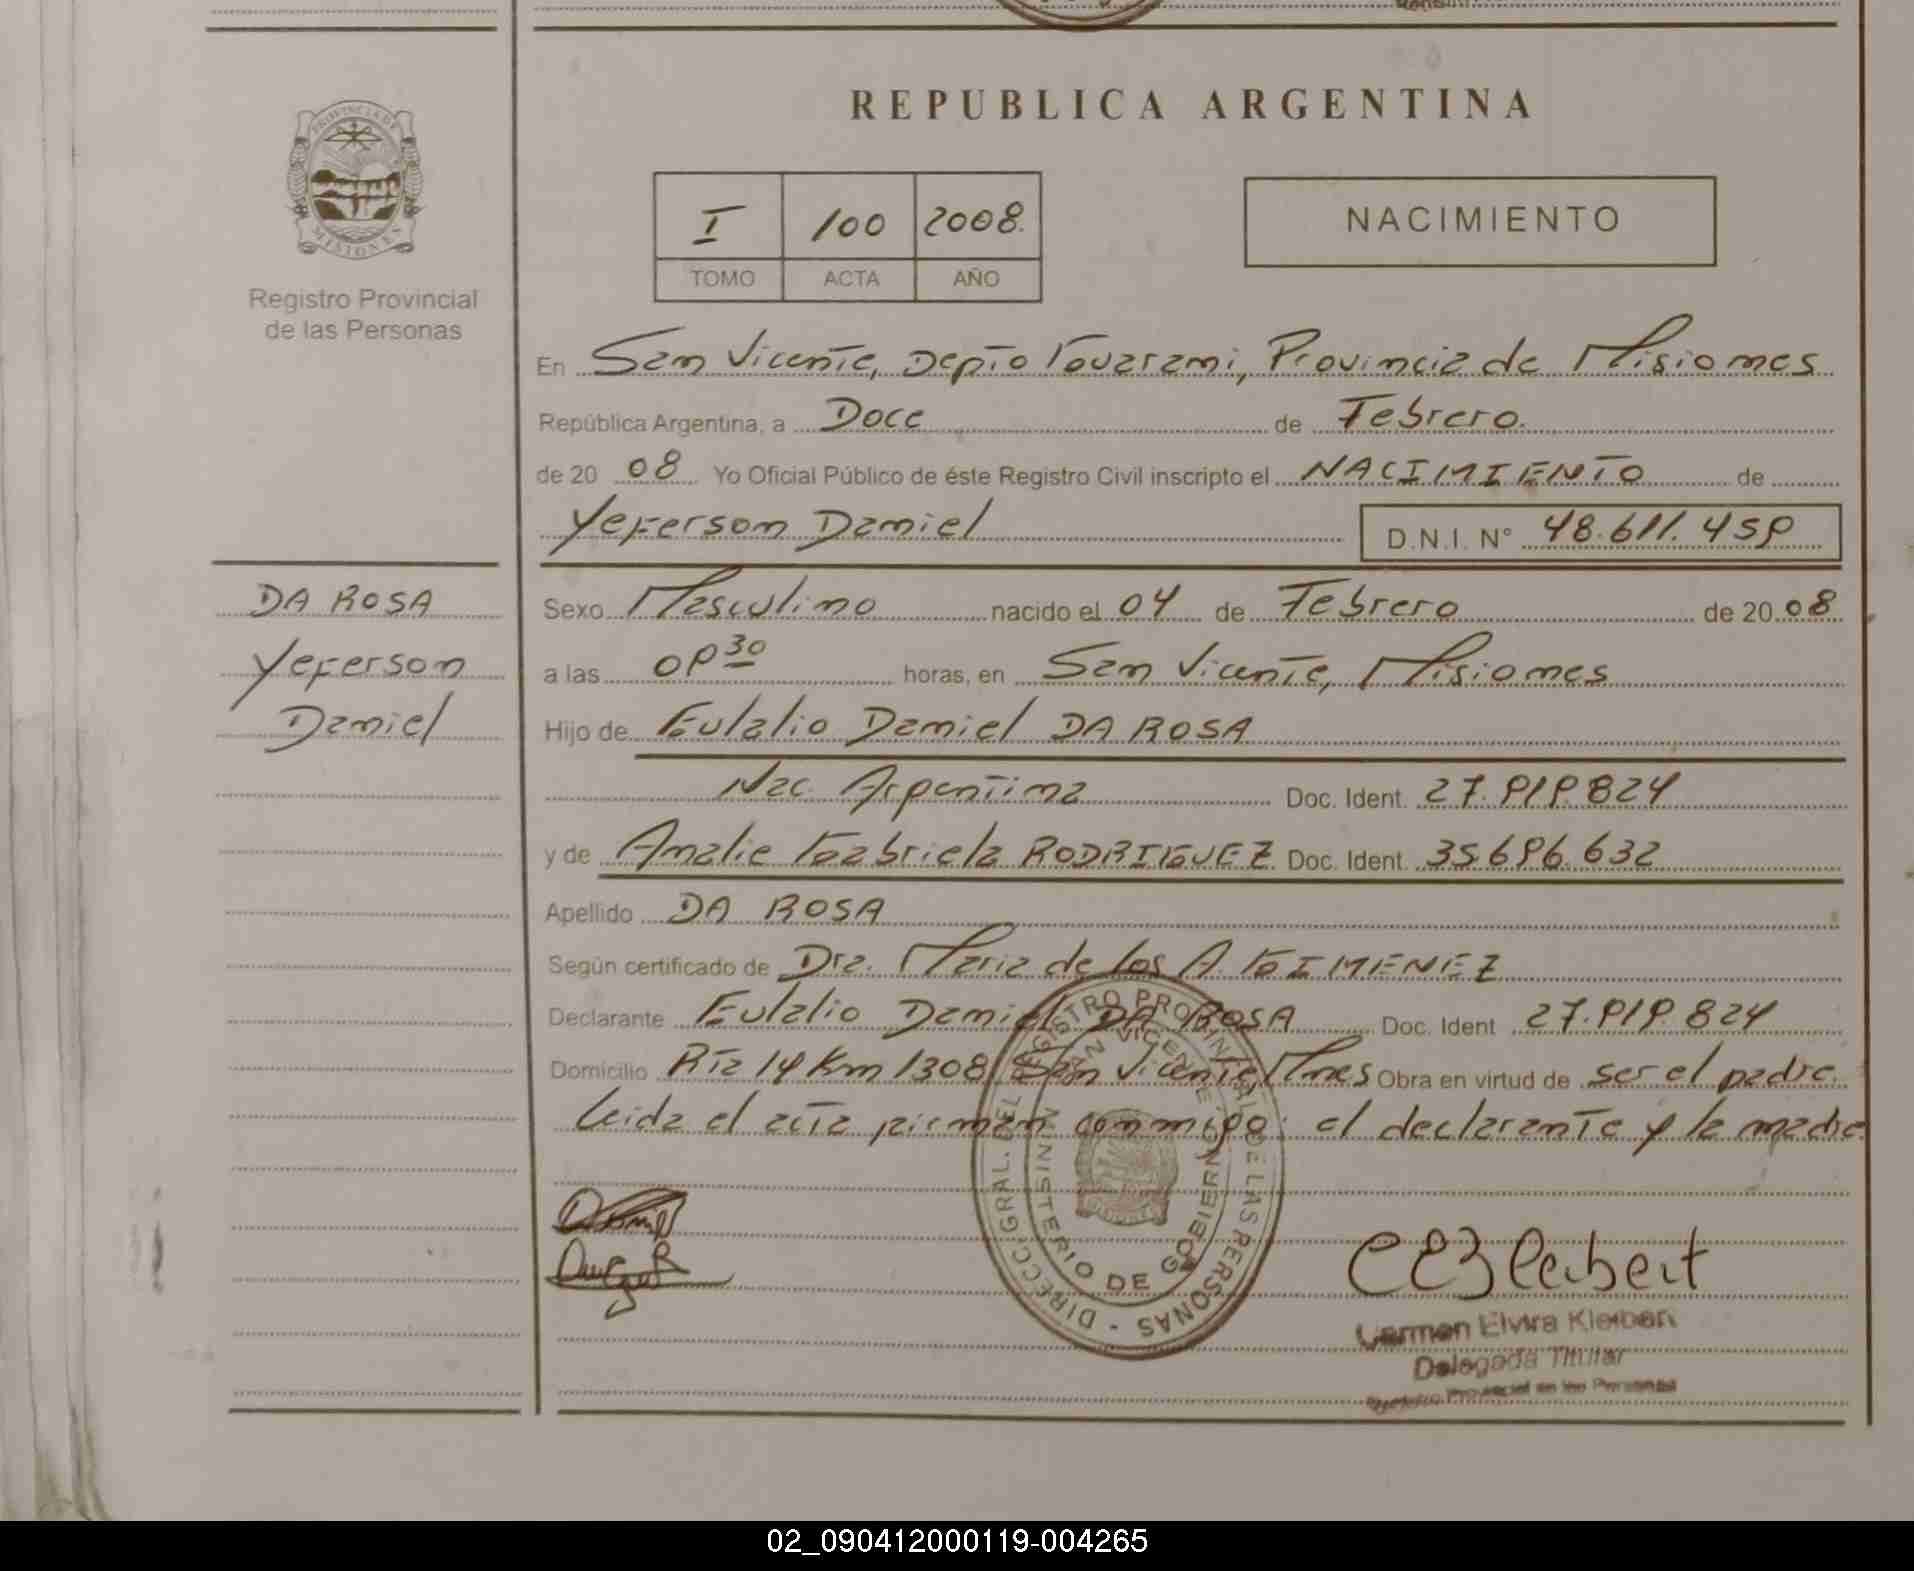 PROVINCIA DE
MISIONES
Registro Provincial
de las Personas
REPUBLICA ARGENTINA
I 100 2008.
TOMO ACTA AÑO
NACIMIENTO
En San Vicente, Depto Guarani, Provincia de Misiones
República Argentina, a Doce de Febrero.
de 20 08 Yo Oficial Público de éste Registro Civil inscripto el NACIMIENTO de
Yeferson Daniel D.N.I. N° 48.611.459
DA ROSA
Yeferson
Daniel
Sexo Masculino nacido el 04 de Febrero de 20 08
a las 09 30 horas, en San Vicente, Misiones
Hijo de Eulalio Daniel DA ROSA
Nac. Argentina Doc. Ident. 27.919.824
y de Analie Gabriela RODRIGUEZ Doc. Ident. 35.696.632
Apellido DA ROSA
Según certificado de Dra. Maria de los A. GIMENEZ
Declarante Eulalio Daniel DA ROSA Doc. Ident 27.919.824
Domicilio Rta 14 Km 1308 San Vicente, Mnes Obra en virtud de ser el padre.
Leida el acta firman conmigo: el declarante y la madre
DIRECC. GRAL. DEL REGISTRO PROVINCIAL DE LAS PERSONAS -
SAN VICENTE
MINISTERIO DE GOBIERNO
Carmen Elvira Kleibert
Delegada Titular
Registro Provincial de las Personas
02_090412000119-004265